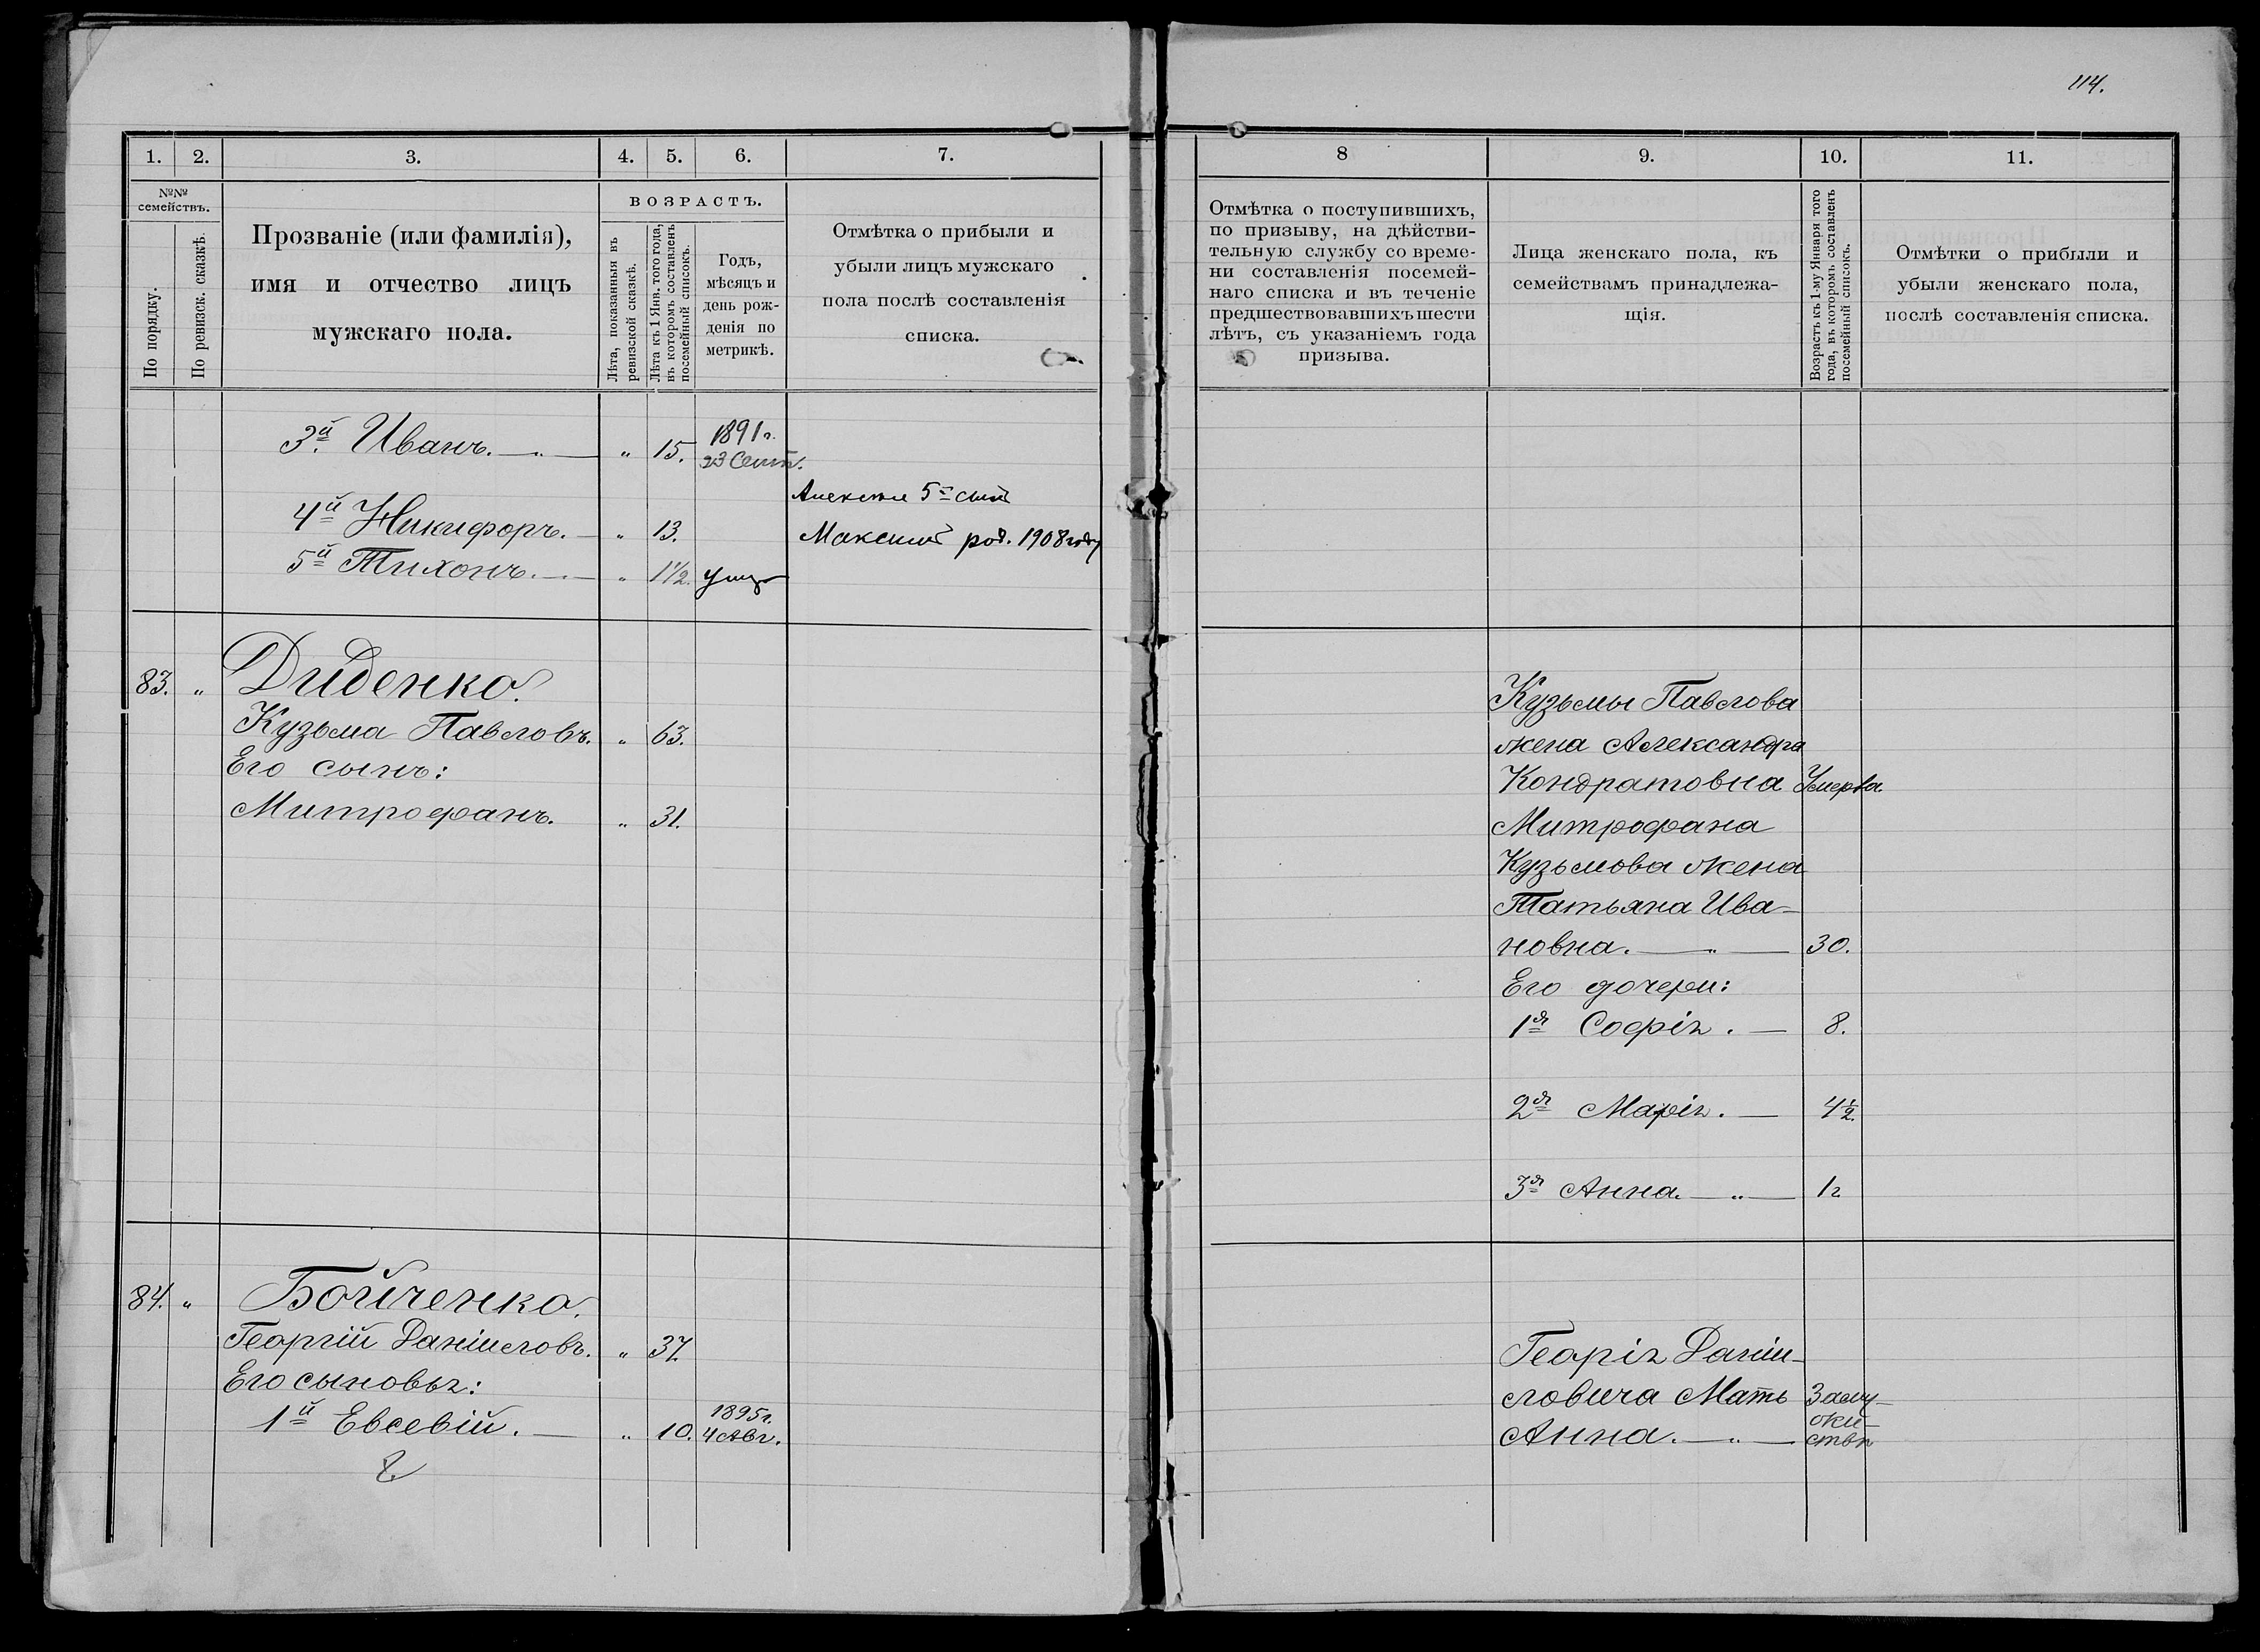 114.
1. 2. 3. 4. 5. 6. 7.
№№ семействъ.
По порядку.
По ревизск. сказкѣ.
Прозваніе (или фамилія),
имя и отчество лицъ
мужскаго пола.
ВОЗРАСТЪ.
Лѣта, показанныя въ
ревизской сказкѣ.
Лѣта къ 1 Янв. того года,
въ которомъ составленъ
посемейный списокъ.
Годъ,
мѣсяцъ и
день рож-
денія по
метрикѣ.
Отмѣтка о прибыли и
убыли лицъ мужскаго
пола послѣ составленія
списка.
3й Иванъ. — „ — „ 15. 1891 г.
23 Сент.
5й сынъ
4й Никифоръ. — „ 13. Максимъ род. 1908 году
5й Тихонъ. — „ 1½.
83. „ Диденко.
Кузьма Павловъ. „ 63.
Его сынъ:
Митрофанъ. „ 31.
84. „ Бойченко.
Георгій Даніиловъ. „ 37.
Его сыновья:
1й Евсевій. — „ 10. 1895 г.
4 Авг.
8 9. 10. 11.
Отмѣтка о поступившихъ,
по призыву, на дѣйстви-
тельную службу со време-
ни составленія посемей-
наго списка и въ теченіе
предшествовавшихъ шести
лѣтъ, съ указаніемъ года
призыва.
Лица женскаго пола, къ
семействамъ принадлежа-
щія.
Возрастъ къ 1-му Января того
года, въ которомъ составленъ
посемейный списокъ.
Отмѣтки о прибыли и
убыли женскаго пола,
послѣ составленія списка.
Кузьмы Павлова
жена Александра
Кондратовна Умерла.
Митрофана
Кузьмова жена
Татьяна Ива-
новна. — „ — 30.
Его дочери:
1я Софія. — 8.
2я Марія. — 4½.
3я Анна. — „ — 1 г
Георія Даніи-
ловича Мать Заму-
жи-
Анна. — „ — ствѣ